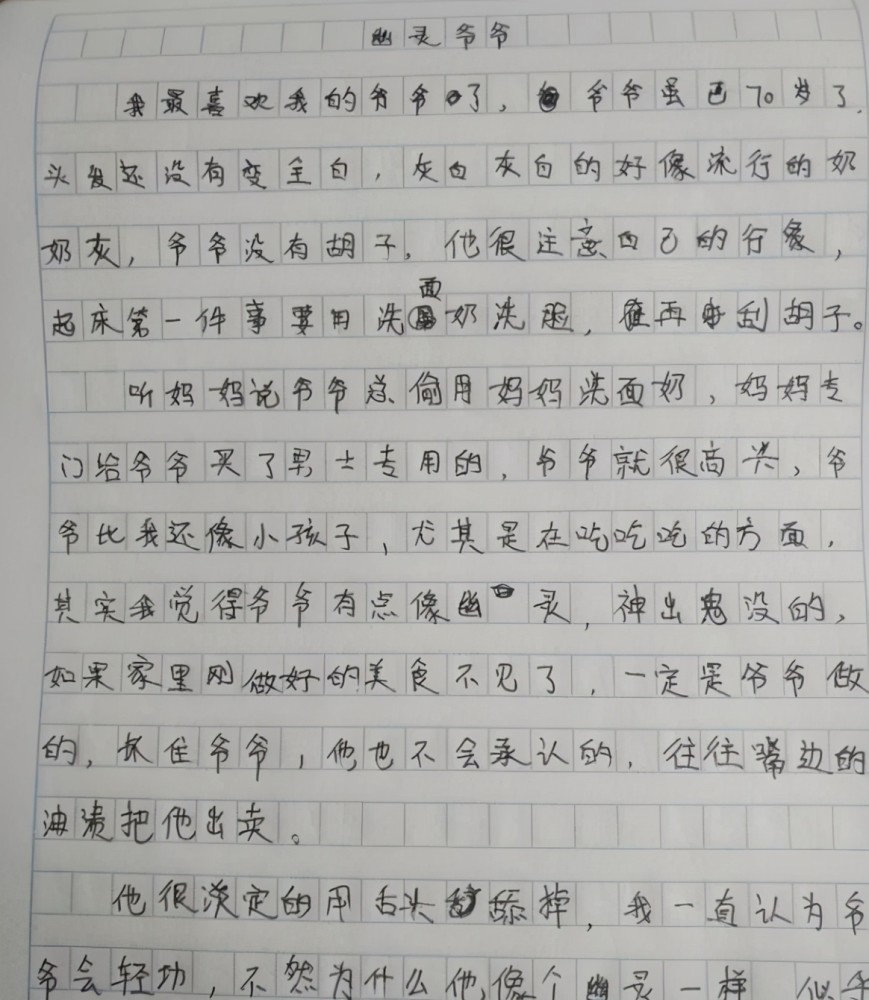 幽灵爷爷
我最喜欢我的爷爷了，爷爷虽已70岁了，
头发还没有变全白，灰白灰白的好像流行的奶
奶灰，爷爷没有胡子，他很注意自己的行象，
起床第一件事要用洗面奶洗脸，再刮胡子。
听妈妈说爷爷总偷用妈妈洗面奶，妈妈专
门给爷爷买了男士专用的，爷爷就很高兴，爷
爷比我还像小孩子，尤其是在吃吃吃的方面，
其实我觉得爷爷有点像幽灵，神出鬼没的，
如果家里刚做好的美食不见了，一定是爷爷做
的，抓住爷爷，他也不会承认的，往往嘴边的
油渍把他出卖。
他很淡定的用舌头舔掉，我一直认为爷
爷会轻功，不然为什么他像个幽灵一样 似乎